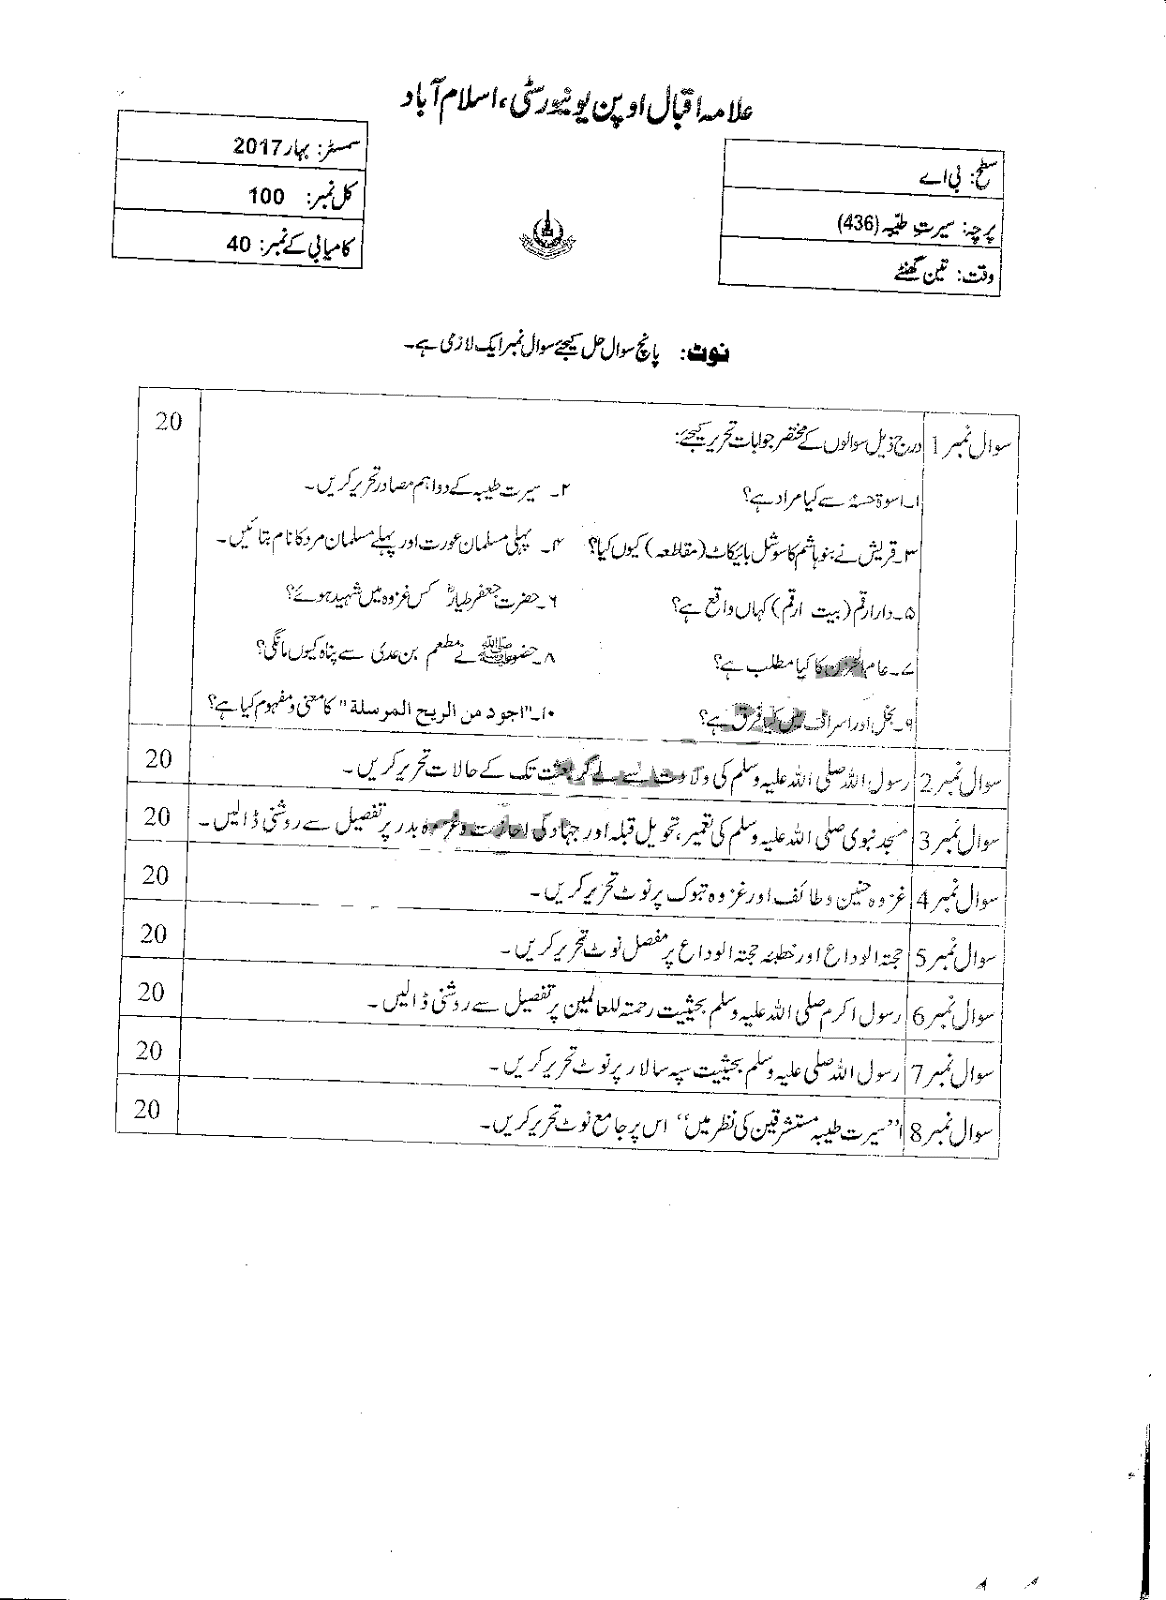 علامہ اقبال اوپن یونیورسٹی، اسلام آباد
سطح: بی اے
پرچہ: سیرتِ طیبہ (436)
وقت: تین گھنٹے
سمسٹر: بہار 2017
کل نمبر: 100
کامیابی کے نمبر: 40
نوٹ: پانچ سوال حل کیجئے سوال نمبر ایک لازمی ہے۔
سوال نمبر 1 درج ذیل سوالوں کے مختصر جوابات تحریر کیجئے: 20
۱۔ اسوۃ حسنہ سے کیا مراد ہے؟ ۲۔ سیرت طیبہ کے دو اہم مصادر تحریر کریں۔
۳۔ قریش نے بنو ہاشم کا سوشل بائیکاٹ (مقاطعہ) کیوں کیا؟ ۴۔ پہلی مسلمان عورت اور پہلے مسلمان مرد کا نام بتائیں۔
۵۔ دار ارقم (بیت ارقم) کہاں واقع ہے؟ ۶۔ حضرت جعفر طیارؓ کس غزوہ میں شہید ہوئے؟
۷۔ عام الحزن کا کیا مطلب ہے؟ ۸۔ حضور ﷺ نے مطعم بن عدی سے پناہ کیوں مانگی؟
۹۔ بخل اور اسراف میں کیا فرق ہے؟ ۱۰۔ "اجود من الریح المرسلة" کا معنی و مفہوم کیا ہے؟
سوال نمبر 2 رسول اللہ صلی اللہ علیہ وسلم کی ولادت سے لے کر بعثت تک کے حالات تحریر کریں۔ 20
سوال نمبر 3 مسجد نبوی صلی اللہ علیہ وسلم کی تعمیر، تحویل قبلہ اور جہاد کی اجازت و غزوہ بدر پر تفصیل سے روشنی ڈالیں۔ 20
سوال نمبر 4 غزوہ حنین و طائف اور غزوہ تبوک پر نوٹ تحریر کریں۔ 20
سوال نمبر 5 حجتہ الوداع اور خطبہ حجتہ الوداع پر مفصل نوٹ تحریر کریں۔ 20
سوال نمبر 6 رسول اکرم صلی اللہ علیہ وسلم بحیثیت رحمتہ للعالمین پر تفصیل سے روشنی ڈالیں۔ 20
سوال نمبر 7 رسول اللہ صلی علیہ وسلم بحیثیت سپہ سالار پر نوٹ تحریر کریں۔ 20
سوال نمبر 8 "سیرت طیبہ مستشرقین کی نظر میں" اس پر جامع نوٹ تحریر کریں۔ 20